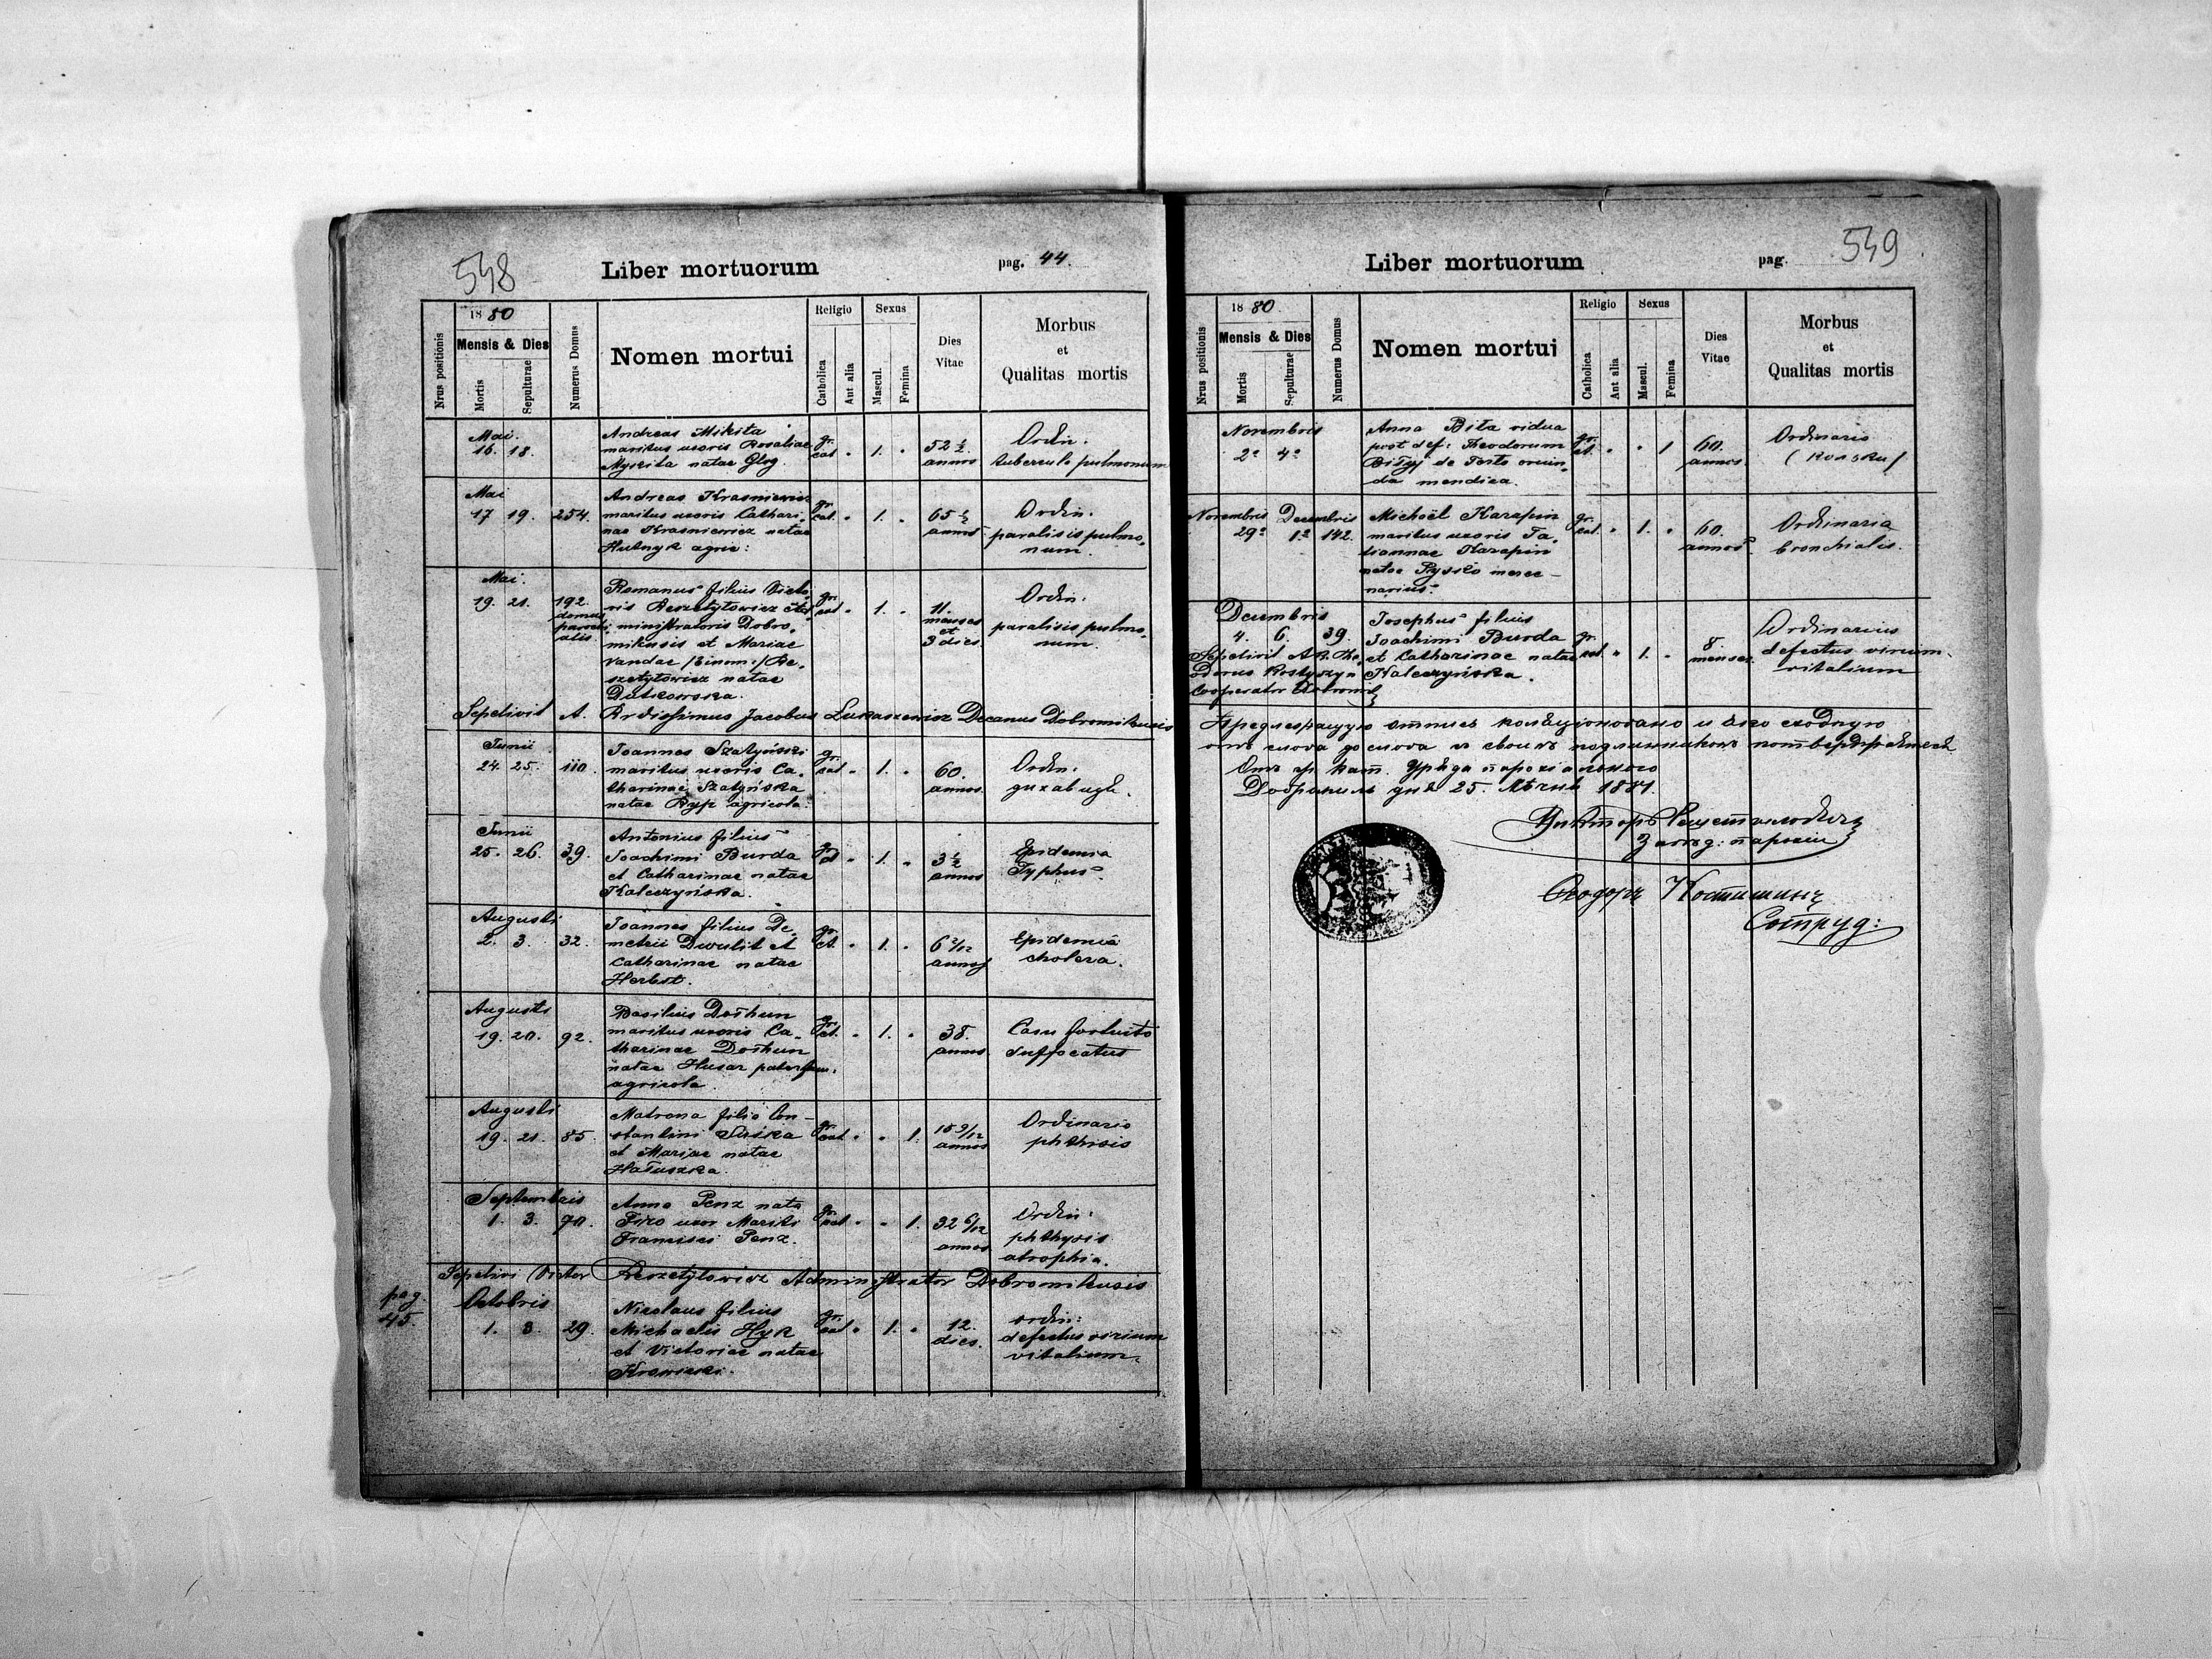 548
Liber mortuorum
pag. 44.
Nrus positionis
1880
Mensis & Dies
Mortis
Sepulturae
Numerus Domus
Nomen mortui
Religio
Catholica
Aut alia
Sexus
Mascul.
Femina
Dies
Vitae
Morbus
et
Qualitas mortis
Mai.
16. 18.
Andreas Mikita
maritus uxoris Rosaliae
natae
gr.
cat. " 1. "
52 1/2
annos
Ordin.
tubercula pulmonum
Mai
17 19. 254.
Andreas Krasniewicz
maritus uxoris Cathari-
nae Krasniewicz natae
Hutnyk agric:
gr.
cat. " 1. "
65 1/2
annos
Ordin.
paralisis pulmo-
num.
Mai.
19. 21. 192.
domus
parochi
alis.
Romanus filius Victo-
ris Reszetyłowicz Ad-
ministratoris Dobro-
milensis et Mariae
Vandae /binom:/ Re-
szetyłowicz natae
Dutkowska.
gr.
cat " 1. "
11.
menses
et
3 dies
Ordin.
paralisis pulmo-
num.
Sepelivit A. Rrdissimus Jacobus Łukaszewicz Decanus Dobromilensis
Junii
24. 25. 110.
Joannes Szatyński
maritus uxoris Ca-
tharinae Szatyńska
natae Byp agricola.
gr.
cat " 1. "
60.
annos
Ordin.
Junii
25. 26. 39.
Antonius filius
Joachimi Burda
et Catharinae natae
Kalczyńska.
gr.
ct " 1. "
3 1/2
annos
Epidemia
Typhus.
Augusti
2. 3. 32.
Joannes filius De-
metrii Dwulit et
Catharinae natae
Herbst.
gr.
ct. " 1. "
6 2/12
annos
Epidemia
cholera.
Augusti
19. 20. 92.
Basilius Doshun
maritus uxoris Ca-
tharinae Doshun
natae Husar paterfam.
agricola.
gr.
ct. " 1. "
38.
annos.
Casu fortuito
suffocatus
Augusti
19. 21. 85.
Matrona filia Con-
stantini
et Mariae natae
Hałuszka.
gr.
cat " " 1.
15 9/12
annos
Ordinaria
phthisis
Septembris
1. 3. 70.
Anna Penz nata
uxor Mariti
Francisci Penz.
gr.
cat " " 1.
32 6/12
annos
Ordin.
phthysis
atrophia.
Sepelivi Victor Reszetyłowicz Administrator Dobromilensis
pag.
45.
Octobris
1. 3. 29.
Nicolaus filius
Michaelis Hyk
et Victoriae natae
gr.
cat " 1. "
12.
dies.
ordin:
defectus virium
vitalium.
549
Liber mortuorum
pag.
Nrus positionis
1880
Mensis & Dies
Mortis
Sepulturae
Numerus Domus
Nomen mortui
Religio
Catholica
Aut alia
Sexus
Mascul.
Femina
Dies
Vitae
Morbus
et
Qualitas mortis
Novembris
2a 4a
Anna Biła vidua
post def: Theodorum
Biłyj de Terło oriun-
da mendica.
gr.
ct. " " 1
60.
annos.
Ordinaria
Novembris Decembris
29a 1a 142.
Michaël Karapin
maritus uxoris Ta-
tiannae Karapin
natae Ryszko merce-
narius.
gr.
cat. " 1. "
60.
annos.
Ordinaria
bronchialis.
Decembris
4. 6. 39.
Sepelivit A. R. The-
odorus Kostyszyn
Cooperator Dobromil
Josephus filius
Joachimi Burda
et Catharinae natae
Kalczyńska.
gr.
cat. " 1. "
8.
menses
Ordinarius
defectus virium
vitalium
Предлежащую отпись и яко сходную
отъ слова до слова съ своимъ подлинникомъ потверждается
Отъ гр. кат. Уряда парохіального
Добромиль дня 25. 1881.
Викторъ Решетиловичъ
Завѣд: парохіи
Ѳеодоръ Костишинъ
Сотруд: